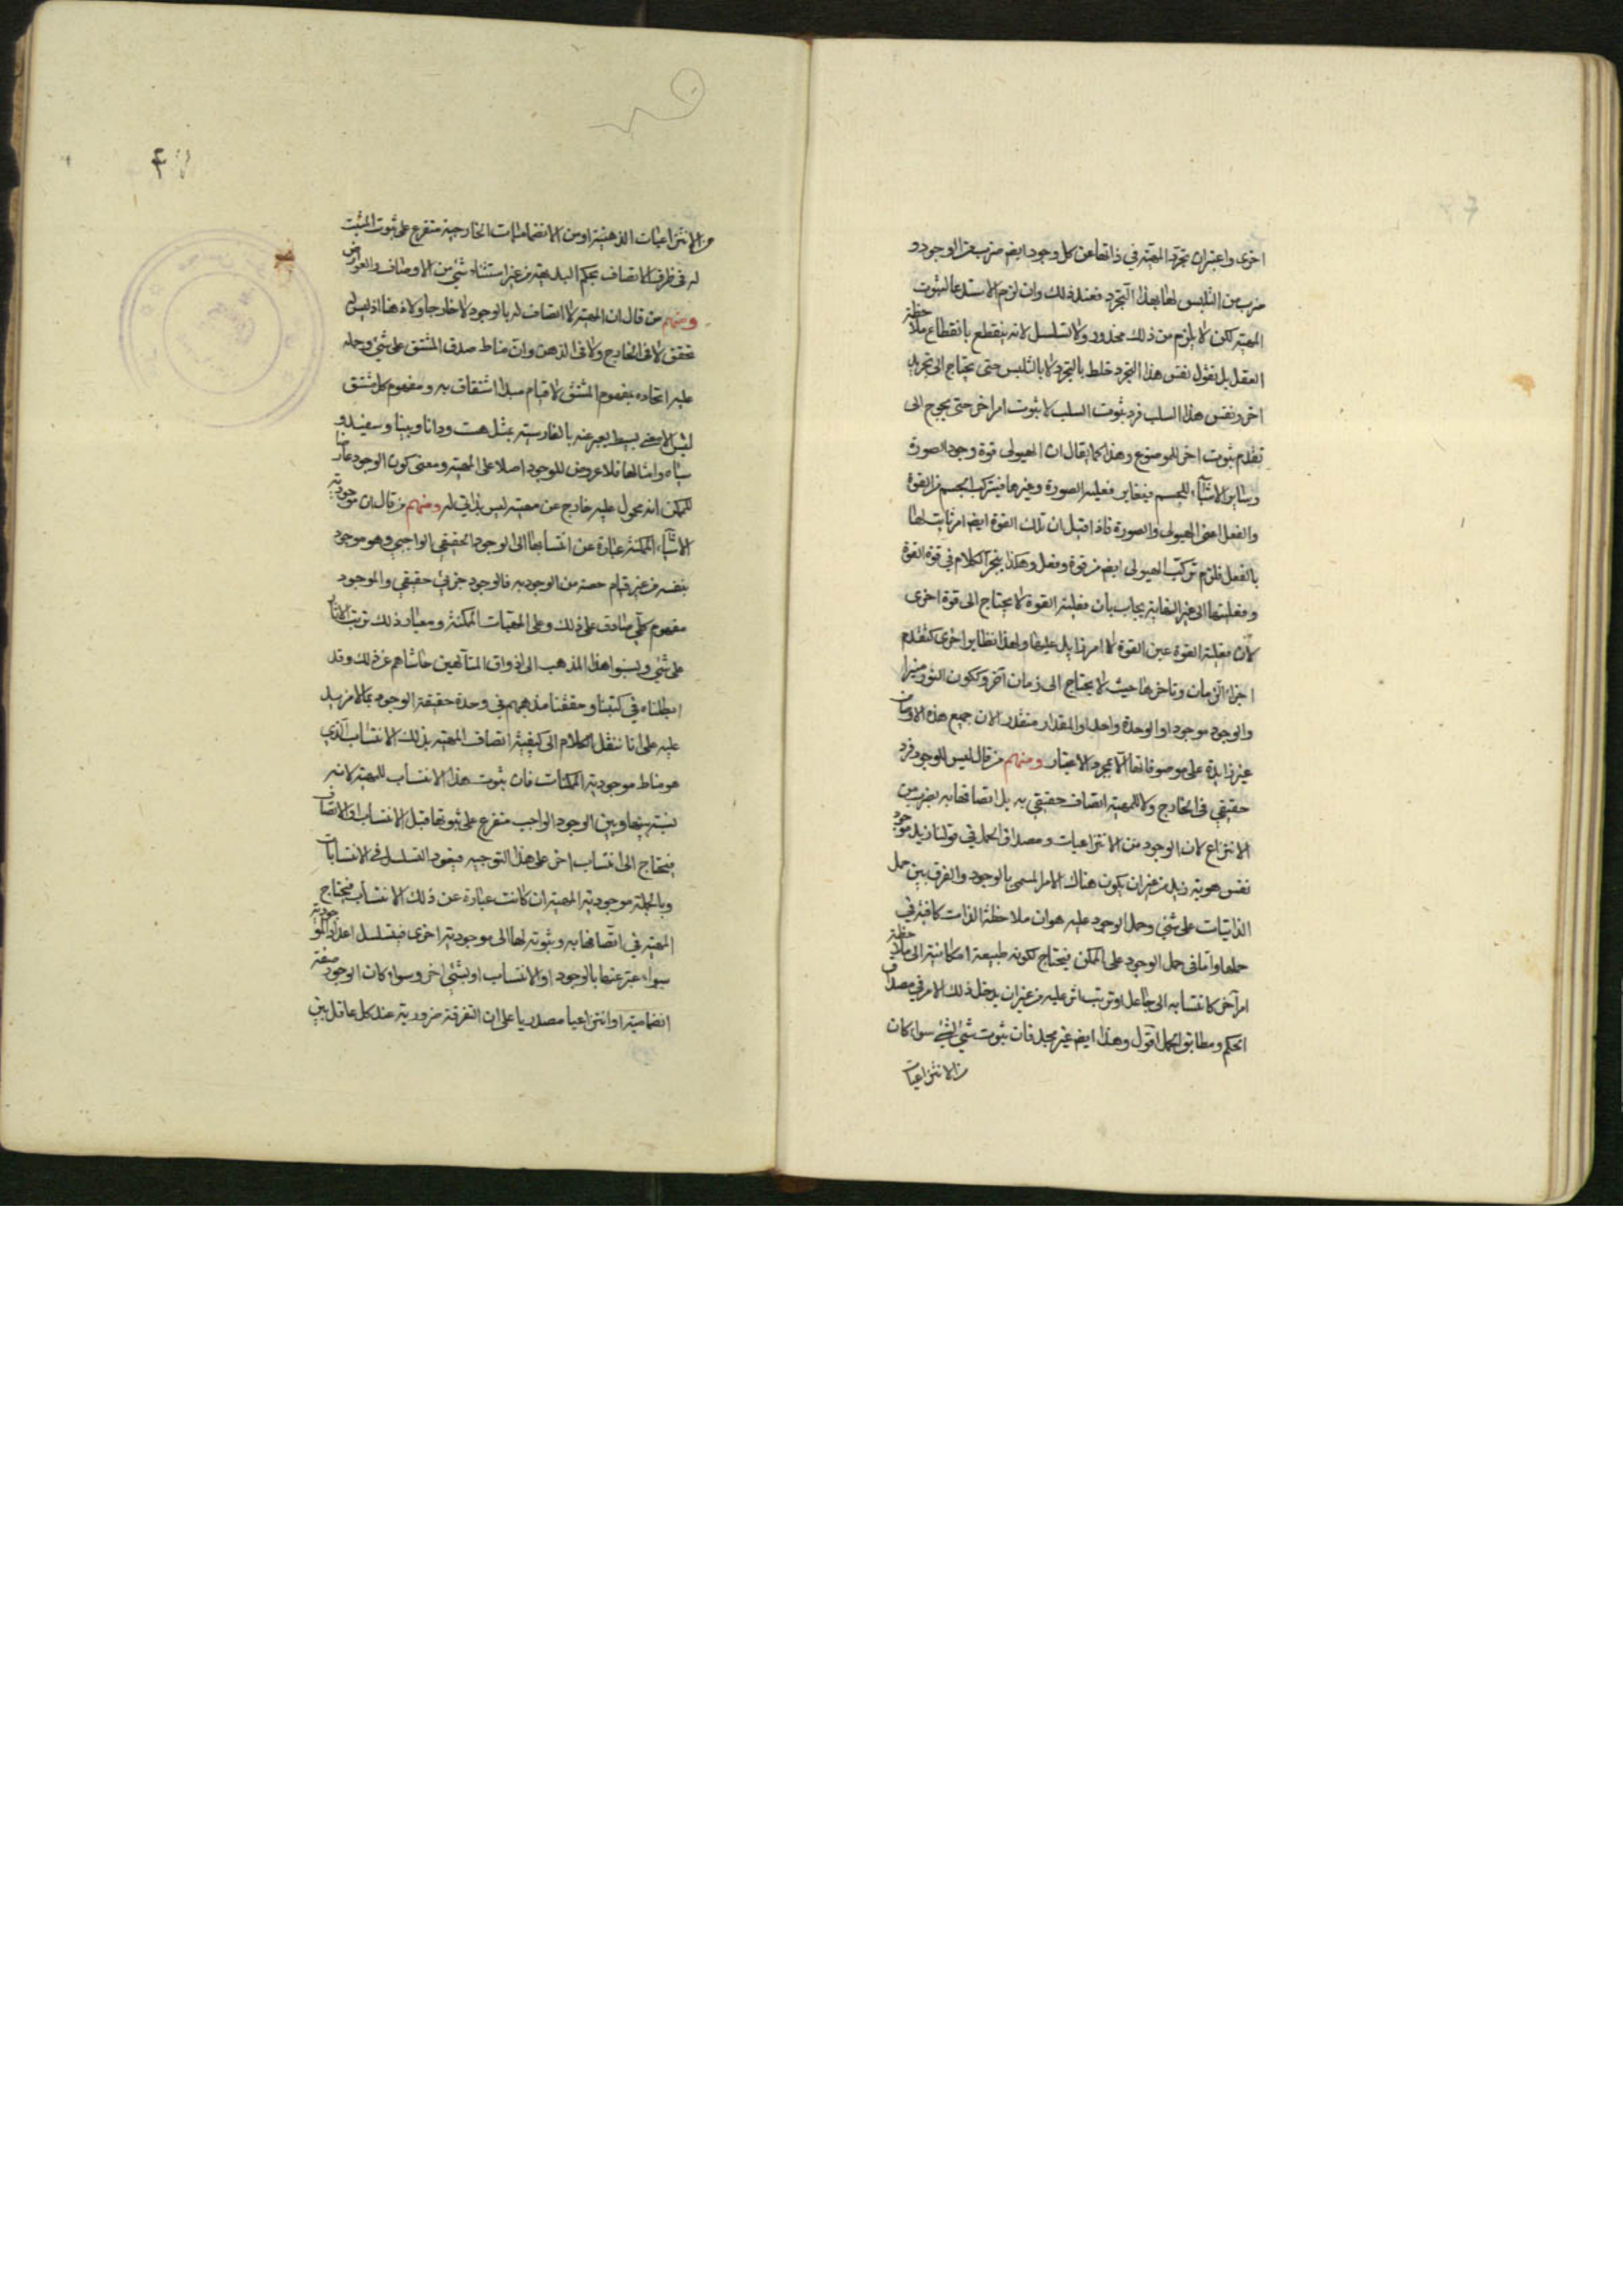 اخرى واعتبران تجرّد المهيّة في ذاتها عن كل وجود ايضم ضرب من الوجود و
ضرب من التلبس لها بعد هذا التجرّد فعند ذلك وان لزم الاستدعا لثبوت
المهيّة لكن لا يلزم من ذلك محذور ولا تسلسل لانه ينقطع بانقطاع ملاحظة
العقل بل نقول نفس هذا التجرّد خلط بالتجرّد لا بالتلبس حتى يحتاج الى تجريد
اخر ونفس هذا السلب فرد ثبوت السلب لا ثبوت امر اخر حتى يحوج الى
تقدم ثبوت اخر للموضوع وهذا كما يقال ان الهيولى قوة وجود الصورة
وساير الاشيآء للجسم فيغاير فعلية الصورة وغيرها فيتركب الجسم من القوة
والفعل اعنى الهيولى والصورة فاذا قيل ان تلك القوة ايضم امر ثابت لها
بالفعل فلزم تركب الهيولى ايضم من قوة وفعل وهكذا ينجرّ الكلام في قوة القوة
وفعليتها الى غير النهاية يجاب بان فعلية القوة لا يحتاج الى قوة اخرى
لان فعلية القوة عين القوة لا امر زايد عليها ولهذا نظاير اخرى كتقدم
اجزاء الزمان وتاخرها حيث لا يحتاج الى زمان آخر وككون النور منيرا
والوجود موجودا والوحدة واحدا والمقدار متقدرا لان جميع هذه الاوصاف
غير زايدة على موصوفاتها الا بمجرد الاعتبار ومنهم من قال ليس للوجود فرد
حقيقي في الخارج ولا للمهيّة اتصاف حقيقي به بل اتصافها به بضرب من
الانتزاع لان الوجود من الانتزاعيات ومصداق الحمل في قولنا زيد موجود
نفس هوية زيد من غير ان يكون هناك الامر المسمى بالوجود والفرق بين حمل
الذاتيات على شئ وحمل الوجود عليه هوان ملاحظة الذات كافية في
حملها واما في حمل الوجود على الممكن فيحتاج لكونه طبيعة امكانية الى ملاحظة
امر آخر كانتسابه الى جاعل او ترتب اثر عليه من غير ان يدخل ذلك الامر في مصداق
الحكم ومطابق الحمل اقول وهذا ايضم غير مجد فان ثبوت شئ لشئ سواء كان
من الانتزاعيات
من الانتزاعيات الذهنية او من الانضماميات الخارجية متفرع على ثبوت المثبت
له في ظرف الاتصاف بحكم البديهة من غير استثناء شئ من الاوصاف والعوارض
ومنهم من قال ان المهيّة لا اتصاف له بالوجود لا خارجا ولا ذهنا اذ ليس له
تحقق لا في الخارج ولا في الذهن وان مناط صدق المشتق على شئ وحمله
عليه اتحاده بمفهوم المشتق لا قيام مبدا اشتقاق به ومفهوم كل مشتق
ليس الا معنى بسيط يعبر عنه بالفارسية بمثل هست ودانا وبينا وسفيد و
سياه وامثالها فلا عروض للوجود اصلا على المهيّة ومعنى كون الوجود عارضا
للممكن انه محمول عليه خارج عن مهيته ليس بذاتي له ومنهم من قال ان موجودية
الاشيآء الممكنة عبارة عن انتسابها الى الوجود الحقيقي الواجبي وهو موجود
بنفسه من غير قيام حصة من الوجود به فالوجود جزئي حقيقي والموجود
مفهوم كلّي صادق على ذلك وعلى المهيّات الممكنة ومعيار ذلك ترتب الاثار
على شئ ونسبوا هذا المذهب الى اذواق المتألهين حاشاهم عن ذلك وقد
ابطلناه في كتبنا وحققنا مذهبهم في وحدة حقيقة الوجود بما لا مزيد
عليه على انا ننقل الكلام الى كيفية اتصاف المهيّة بذلك الانتساب الّذي
هو مناط موجودية الممكنات فان ثبوت هذا الانتساب للمهيّة لانه
نسبة بينها وبين الوجود الواجب متفرع على ثبوتها قبل الانتساب والاتصاف
فيحتاج الى انتساب اخر على هذا التوجيه فيعود التسلسل في الانتسابات
وبالجملة موجودية المهيّة ان كانت عبارة عن ذلك الانتساب فيحتاج
المهيّة في اتّصافها به وثبوته لها الى موجودية اخرى فيتسلسل اعداد الموجودية
سواء عبّر عنها بالوجود او الانتساب او بشئ اخر وسواء كان الوجود صفة
انضامية او انتزاعيا مصدريا على ان التفرقة ضرورية عند كل عاقل بين